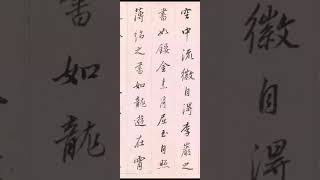 空中流徽自得李巖之
書如鏤金素月屈玉自照
薄紹之書如龍遊在霄
徽自得
如龍